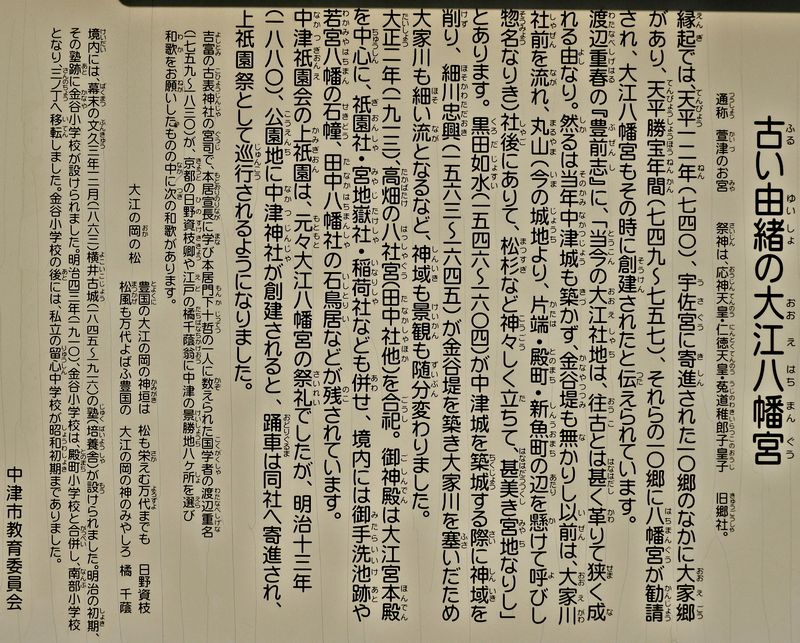 古い由緒の大江八幡宮
通称　萱津のお宮　祭神は、応神天皇・仁徳天皇・菟道稚郎子皇子　旧郷社。
縁起では、天平一二年(七四〇)、宇佐宮に寄進された一〇郷のなかに大家郷
があり、天平勝宝年間(七四九〜七五七)、それらの一〇郷に八幡宮が勧請
され、大江八幡宮もその時に創建されたと伝えられています。
渡辺重春の『豊前志』に、「当今の大江社地は、往古とは甚く革りて狭く成
れる由なり。然るは当年中津城も築かず、金谷堤も無かりし以前は、大家川
社前を流れ、丸山(今の城地より、片端・殿町・新魚町の辺を懸けて呼びし
惣名なりき)社後にありて、松杉など神々しく立ちて、甚美き宮地なりし」
とあります。黒田如水(一五四六〜一六〇四)が中津城を築城する際に神域を
削り、細川忠興(一五六三〜一六四五)が金谷堤を築き大家川を塞いだため
大家川も細い流となるなど、神域も景観も随分変わりました。
大正二年(一九一三)、高畑の八社宮(田中社他)を合祀。御神殿は大江宮本殿
を中心に、祇園社・宮地獄社・稲荷社なども併せ、境内には御手洗池跡や
若宮八幡の石幢、田中八幡社の石鳥居などが残されています。
中津祇園会の上祇園は、元々大江八幡宮の祭礼でしたが、明治十三年
(一八八〇)、公園地に中津神社が創建されると、踊車は同社へ寄進され、
上祇園祭として巡行されるようになりました。
吉富の古表神社の宮司で、本居宣長に学び本居門下十哲の一人に数えられた国学者の渡辺重名
(一七五九〜一八三〇)が、京都の日野資枝卿や江戸の橘千蔭翁に中津の景勝地八ヶ所を選び
和歌をお願いしたものの中に次の和歌があります。
大江の岡の松
豊国の大江の岡の神垣は　松も栄えむ万代までも　日野資枝
松風も万代よばふ豊国の　大江の岡の神のみやしろ　橘　千蔭
境内には、幕末の文久三年二月(一八六三)横井古城(一八四五〜一九一六)の塾(培養舎)が設けられました。明治の初期、
その塾跡に金谷小学校が設けられました。明治四三年(一九一〇)、金谷小学校は、殿町小学校と合併し、南部小学校
となり、三ノ丁へ移転しました。金谷小学校の後には、私立の留心中学校が昭和初期までありました。
中津市教育委員会